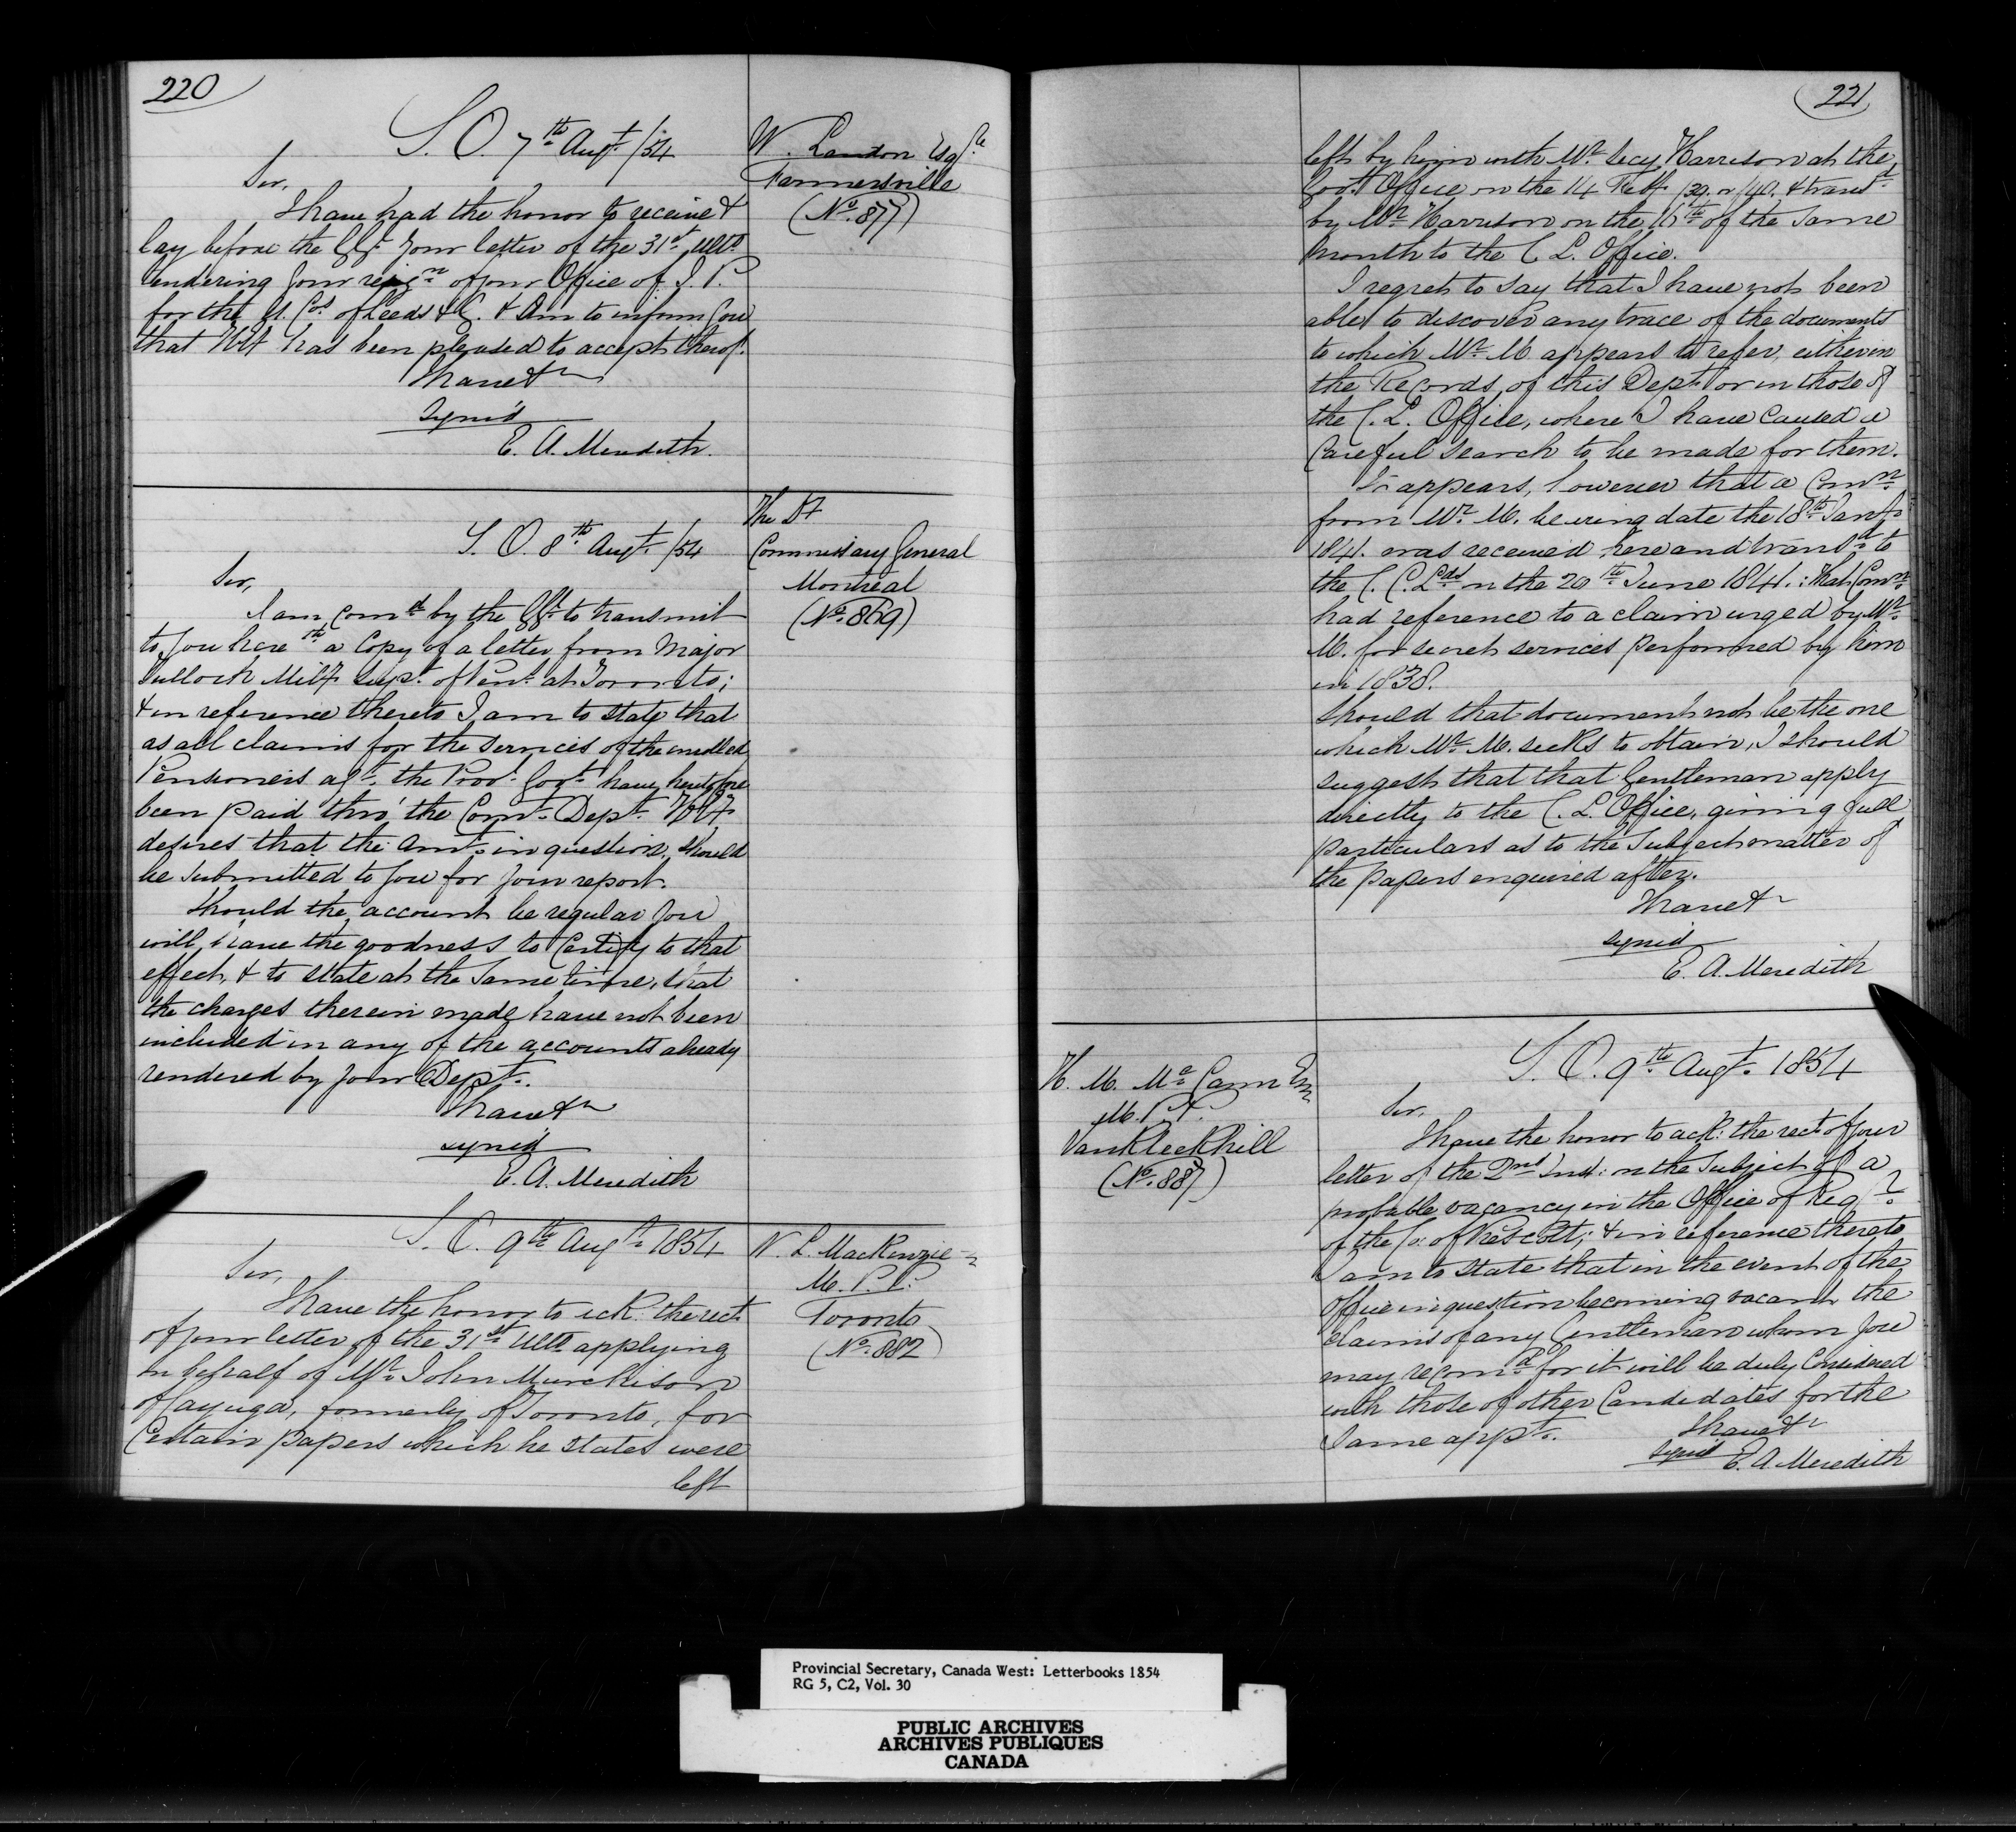 220
S. O. 7th Augt /54
W. Landon Esqre
Farmersville
(No. 877)
Sir,
I have had the honor to receive &
lay before the GGt your letter of the 31st ulto
tendering your resign of your Office of J. P.
for the U. Cos of Leeds & G. & am to inform you
that HEt has been pleased to accept thereof.
I have &c
signed
E. A. Meredith.
S. O. 8th Augt /54
The Dt
Commissary General
Montreal
(No. 869)
Sir,
I am comd by the GGt to transmit
to you herewth a Copy of a letter from Major
Tulloch Mily Supt of Pens at Toronto;
& in reference thereto I am to state that
as all claims for the services of the enrolled
Pensioners agt the Provl Govt have heretofore
been paid thro' the Comt Dept HEy
desires that the amt in question should
be submitted to you for your report.
Should the account be regular you
will have the goodness to Certify to that
effect, & to state at the same time, that
the charges therein made have not been
included in any of the accounts already
rendered by your Dept.
I have &c
signed
E. A. Meredith
S. O. 9th Augt 1854
W. L. MacKenzie
M. P. P.
Toronto
(No. 882)
Sir,
I have the honor to ack: the rect
of your letter of the 31st ulto applying
on behalf of Mr John Murchison
of Cayuga, formerly of Toronto, for
Certain papers which he states were
left
221
left by him with Mr Secy Harrison at the
Govt Office on the 14 Feby /39 or /40, & transd
by Mr Harrison on the 16th of the same
month to the C. L. Office.
I regret to say that I have not been
able to discover any trace of the documents
to which Mr M. appears to refer, either in
the Records of this Dept or in those of
the C. L. Office, where I have caused a
Careful search to be made for them.
It appears, however that a Comn
from Mr M. bearing date the 18th Jany
1841. was received here and transd to
the C. C. Lds on the 20th June 1841.: that Comn
had reference to a claim urged by Mr
M. for secret services performed by him
in 1838.
Should that document not be the one
which Mr M. seeks to obtain, I should
suggest that that Gentleman apply
directly to the C. L. Office, giving full
particulars as to the Subject matter of
the papers enquired after.
I have &c
signed
E. A. Meredith
S. O. 9th Augt 1854
H. M. McCann Esq
M. P. P.
VanKleekhill
(No. 887)
Sir,
I have the honor to ack: the rect of your
letter of the 2nd Inst: on the Subject of a
probable vacancy in the Office of Regr
of the Co: of Prescott; & in reference thereto
I am to state that in the event of the
Office in question becoming vacant the
claims of any Gentleman whom you
may recomd for it will be duly Considered
with those of other Candidates for the
same appt.
I have &c
signed E. A. Meredith
Provincial Secretary, Canada West: Letterbooks 1854
RG 5, C2, Vol. 30
PUBLIC ARCHIVES
ARCHIVES PUBLIQUES
CANADA